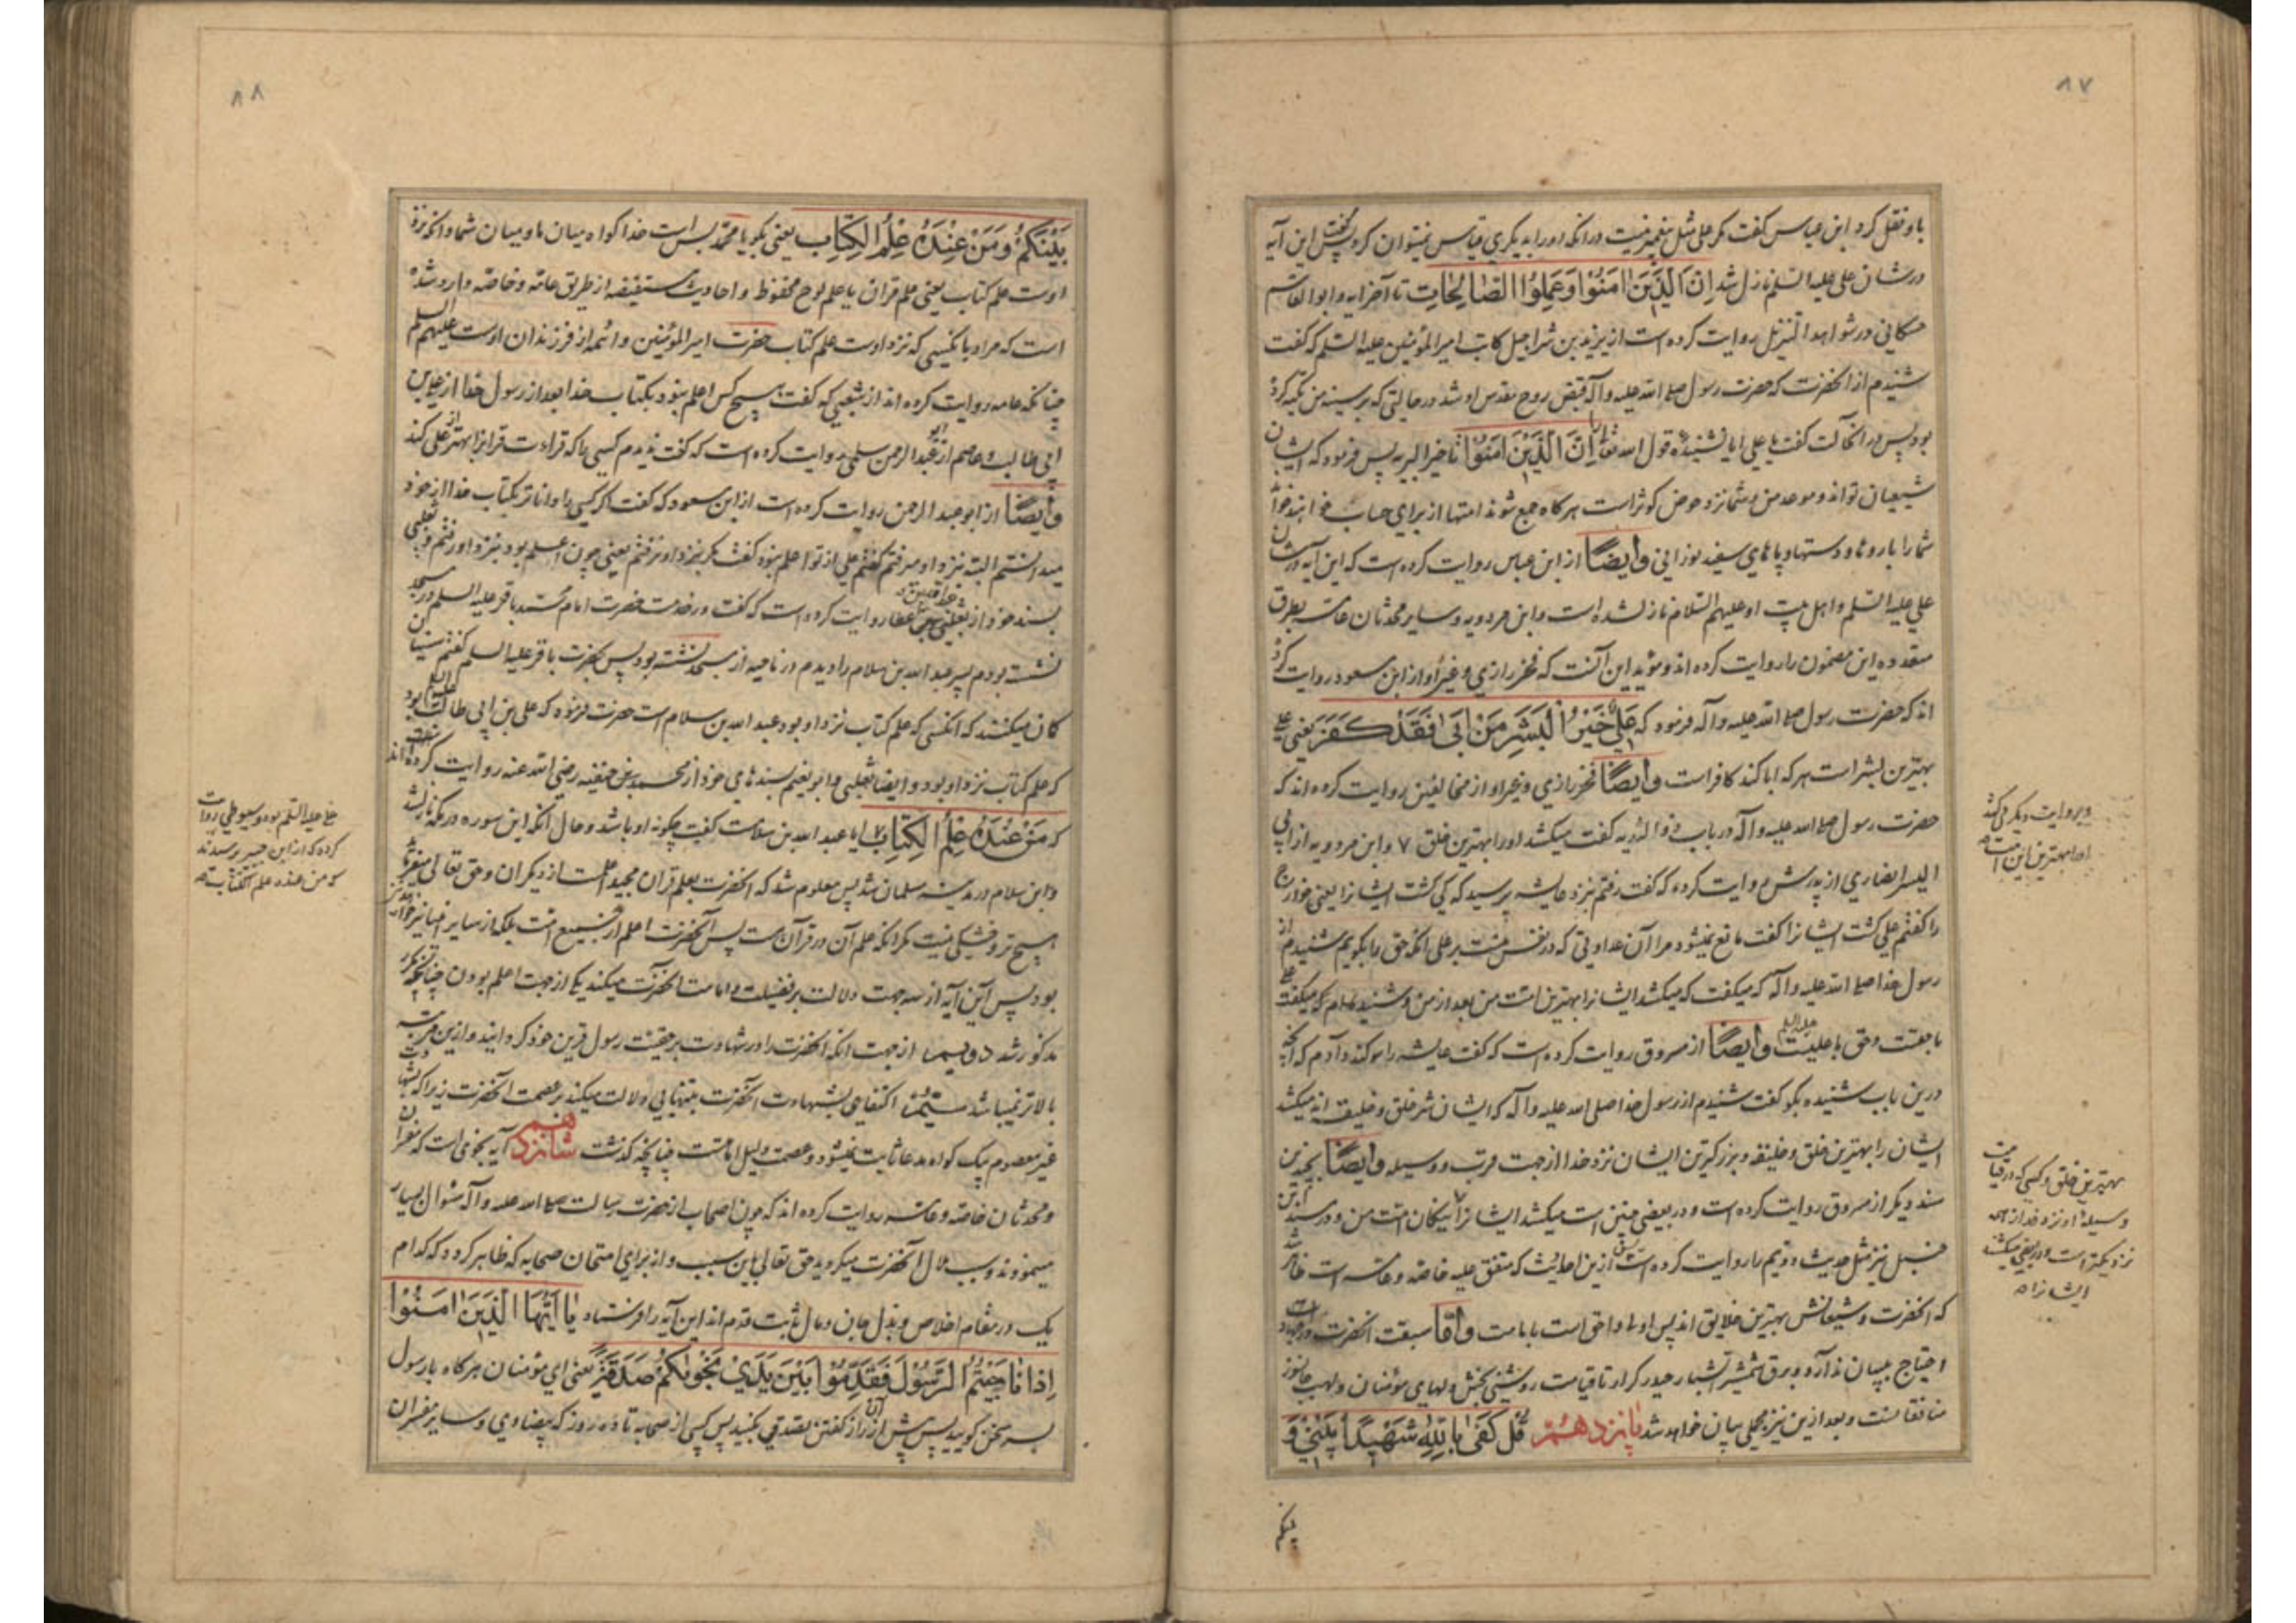 ۸۷
باو نقل کرد ابن عباس گفت مگر علی مثل پیغمبر نیست در آنکه او را بدیگری قیاس نمیتوان کرد پس این آیه
در شان علی علیه السلم نازل شد اِنَّ الَّذینَ اٰمَنُوا وَعَمِلُوا الصّٰالِحٰاتِ تا آخر آیه و ابو القاسم
حسکانی در شواهد التنزیل روایت کرده است از یزید بن شراحیل کاتب امیر المؤمنین علیه السلم که گفت
شنیدم از آنحضرت که حضرت رسول صلی الله علیه وآله قبض روح مقدس او شد در حالتی که بر سینه من تکیه کرده
بود پس در آنحالت گفت یا علی ایا نشنیدهٔ قول الله تعالی اِنَّ الَّذینَ اٰمَنُوا تا خیر البریه پس فرمود که ایشان
شیعیان تواند و موعد من و شما نزد حوض کوثر است هرگاه جمع شوند امتها از برای حساب خواهند خواند
شما را با روها و دستها و پاهای سفید نورانی وایضًا از ابن عباس روایت کرده است که این آیه در شان
علی علیه السلم و اهل بیت او علیهم السلام نازل شده است و ابن مردویه و سایر محدثان عامه بطرق
متعدده این مضمون را روایت کرده اند و مؤید این آنست که فخر رازی و غیر او از ابن مسعود روایت کرده
اند که حضرت رسول صلی الله علیه وآله فرمود که عَلیٌّ خَیْرُ الْبَشَرِ مَنْ اَبیٰ فَقَدْ کَفَرَ یعنی علی
بهترین بشر است هر که ابا کند کافر است وایضًا فخر رازی و غیر او از مخالفین روایت کرده اند که
حضرت رسول صلی الله علیه وآله در باب ذو الثدیه گفت میکشد او را بهترین خلق ۷ و ابن مردویه از ابی
الیسر انصاری از پدرش روایت کرده که گفت رفتم نزد عایشه پرسید که کی کشت ایشانرا یعنی خوارج
را گفتم علی کشت ایشانرا گفت مانع نمیشود مرا آن عداوتی که در نفس منست بر علی آنکه حق را بگویم شنیدم از
رسول خدا صلی الله علیه وآله که میگفت که میکشد ایشانرا بهترین امت من بعد از من و شنیده ام که میگفت علی
با حقست و حق با علیست علیه السلم وایضًا از مسروق روایت کرده است که گفت عایشه را سوگند دادم که آنچه
درین باب شنیده بگو گفت شنیدم از رسول خدا صلی الله علیه وآله که ایشان شر خلق و خلیقه اند میکشد
ایشان را بهترین خلق و خلیقه و بزرگترین ایشان نزد خدا از جهت قرب و وسیله وایضًا بچندین
سند دیگر از مسروق روایت کرده است و در بعضی چنین است میکشد ایشانرا نیکان امت من و در مسند ابن
حنبل نیز مثل حدیث دویم را روایت کرده است پس ازین احادیث که متفق علیه خاصه و عامه است ظاهر شد
که آنحضرت و شیعیانش بهترین خلایق اند پس اولی و احق است بامامت وامّا سبقت آنحضرت در جهاد
احتیاج ببیان ندارد و برق شمشیر آتشبار حیدر کرار تا قیامت روشنی بخش دلهای مؤمنان و لهیب جانسوز
منافقانست و بعد ازین نیز مجملی بیان خواهد شد پانزدهم قُلْ کَفیٰ بِاللّٰهِ شَهیدًا بَیْنی وَ
بینکم
و بروایت دیگر میکشد
او را بهترین این امت
بهترین خلق و کسی که در قیامت
وسیلهٔ او نزد خدا از همه
نزدیکتر است و در بعضی میکشد
ایشانرا
۸۸
بَیْنَکُمْ وَمَنْ عِنْدَهُ عِلْمُ الْکِتٰابِ یعنی بگو یا محمّد بس است خدا گواه میان ما و میان شما و آنکه نزد
اوست علم کتاب یعنی علم قران یا علم لوح محفوظ و احادیث مستفیضه از طریق عامه و خاصه وارد شده
است که مراد بآنکسی که نزد اوست علم کتاب حضرت امیر المؤمنین و ائمه از فرزندان اوست علیهم السلم
چنانکه عامه روایت کرده اند از شعبی که گفت هیچ کس اعلم نبود بکتاب خدا بعد از رسول خدا از علی بن
ابی طالب و عاصم از ابو عبد الرحمن سلمی روایت کرده است که گفت ندیدم کسی را که قراءت قرانرا بهتر از علی کند
وایضًا از ابو عبد الرحمن روایت کرده است از ابن مسعود که گفت اگر کسی را داناتر بکتاب خدا از خود
میدانستم البته نزد او میرفتم گفتم علی از تو اعلم نبود گفت مگر نزد او نرفتم یعنی چون اعلم بود نزد او رفتم و ثعلبی
بسند خود از عبد الله بن عطا روایت کرده است که گفت در خدمت حضرت امام محمّد باقر علیه السلم در مسجد
نشسته بودم پسر عبد الله بن سلام را دیدم در ناحیه از مسجد نشسته بود پس بحضرت باقر علیه السلم گفتم سنیان
گمان میکنند که آنکسی که علم کتاب نزد او بود عبد الله بن سلام است حضرت فرمود که علی بن ابی طالب علیه السلم بود
که علم کتاب نزد او بود وایضا ثعلبی و ابو نعیم بسندهای خود از محمد بن حنفیه رضی الله عنه روایت کرده اند
که مَنْ عِنْدَهُ عِلْمُ الْکِتٰابِ ۷ ایا عبد الله بن سلامست گفت چگونه او باشد و حال آنکه این سوره در مکه نازل شد
و ابن سلام در مدینه مسلمان شد پس معلوم شد که آنحضرت بعلم قران مجید اعلمست از دیگران و حق تعالی میفرماید
هیچ تر و خشکی نیست مگر آنکه علم آن در قرآن هست پس آنحضرت اعلم از جمیع امت بلکه از سایر انبیا نیز خواهد
بود پس این آیه از سه جهت دلالت بر فضیلت و امامت آنحضرت میکند یکی از جهت اعلم بودن چنانچه
مذکور شد دویم از جهت آنکه آنحضرت را در شهادت بر حقیت رسول قرین خود گردانید و ازین مرتبه
بالاتر نمیباشد سیُّم اکتفای بشهادت آنحضرت بتنهایی دلالت میکند بر عصمت آنحضرت زیرا که بشهادت
غیر معصوم یک گواه مدعا ثابت نمیشود و عصمت دلیل امامتست چنانچه گذشت شانزدهم آیه نجوی است که مفسران
و محدثان خاصه و عامه روایت کرده اند که چون اصحاب از حضرت رسالت صلی الله علیه وآله سئوال بسیار
مینمودند و سبب ملال آنحضرت میگردید حق تعالی باین سبب و از برای امتحان صحابه که ظاهر گردد که کدام
یک در مقام اخلاص و بذل جان و مال ثابت قدم اند این آیه را فرستاد یٰا اَیُّهَا الَّذینَ اٰمَنُوا
اِذٰا نٰاجَیْتُمُ الرَّسُولَ فَقَدِّمُوا بَیْنَ یَدَیْ نَجْوٰیکُمْ صَدَقَةً یعنی ای مؤمنان هرگاه با رسول
بسر سخن گویید پس پیش از آن راز گفتن تصدقی بکنید پس کسی از صحابه تا ده روز که بیضاوی و سایر مفسران
علی علیه السلم بود و سیوطی روایت
کرده که از ابن جبیر پرسیدند
که من عنده علم الکتاب